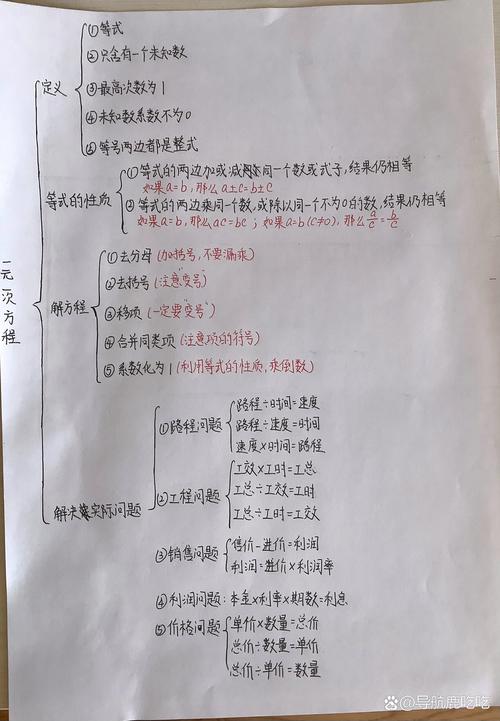 一元一次方程
定义
①等式
②只含有一个未知数
③最高次数为1
④未知数系数不为0
⑤等号两边都是整式
等式的性质
①等式的两边加或减同一个数或式子,结果仍相等
如果a=b,那么a±c=b±c
②等式的两边乘同一个数,或除以同一个不为0的数,结果仍相等
如果a=b,那么ac=bc;如果a=b(c≠0),那么a/c=b/c
解方程
①去分母(加括号,不要漏乘)
②去括号(注意"变号")
③移项(一定要"变号")
④合并同类项(注意项的符号)
⑤系数化为1(利用等式的性质,乘倒数)
解决实际问题
①路程问题
路程÷时间=速度
路程÷速度=时间
速度×时间=路程
②工程问题
工效×工时=工总
工总÷工效=工时
工总÷工时=工效
③销售问题
售价-进价=利润
利润=进价×利润率
④利润问题:本金×利率×期数=利息
⑤价格问题
单价×数量=总价
总价÷数量=单价
总价÷单价=数量
@导航鹿吃吃